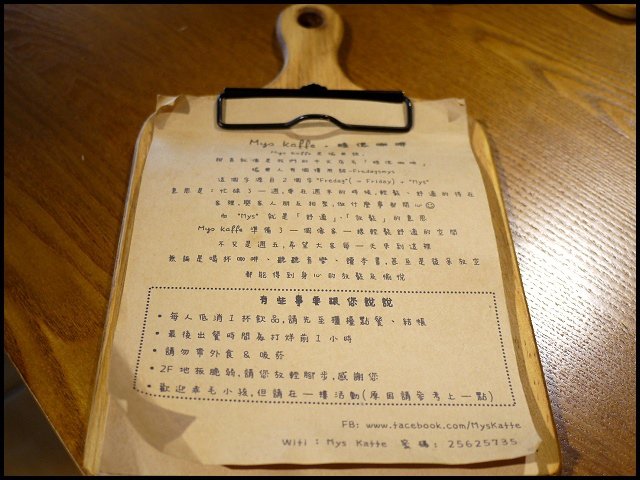 Mys Kaffe・瞇思咖啡
Mys Kaffe是瑞典語,
瑞典人有個慣用語-Fredagsmys
這個字源自2個字"Fredag"(=Friday)+"Mys"
意思是:忙碌了一週,會在週末的時候,輕鬆、舒適的待在
家裡,與家人朋友相聚,做什麼事都開心☺
而 "Mys" 就是「舒適」、「放鬆」的意思
Mys Kaffe 準備了一個像家一樣輕鬆舒適的空間
不只是週五,希望大家每一天來到這裡
無論是喝杯咖啡、聽聽音樂、讀本書,甚至是發呆放空
都能得到身心的放鬆及愉悅
有些事要跟您說說
• 每人低消1杯飲品,請先至櫃檯點餐、結帳
• 最後出餐時間為打烊前1小時
• 請勿帶外食 & 吸菸
• 2F 地板脆弱,請您放輕腳步,感謝您
• 歡迎毛小孩,但請在一樓活動(原因請參考上一點)
FB: www.facebook.com/MysKatte
Wifi : Mys Katte 密碼: 25625735